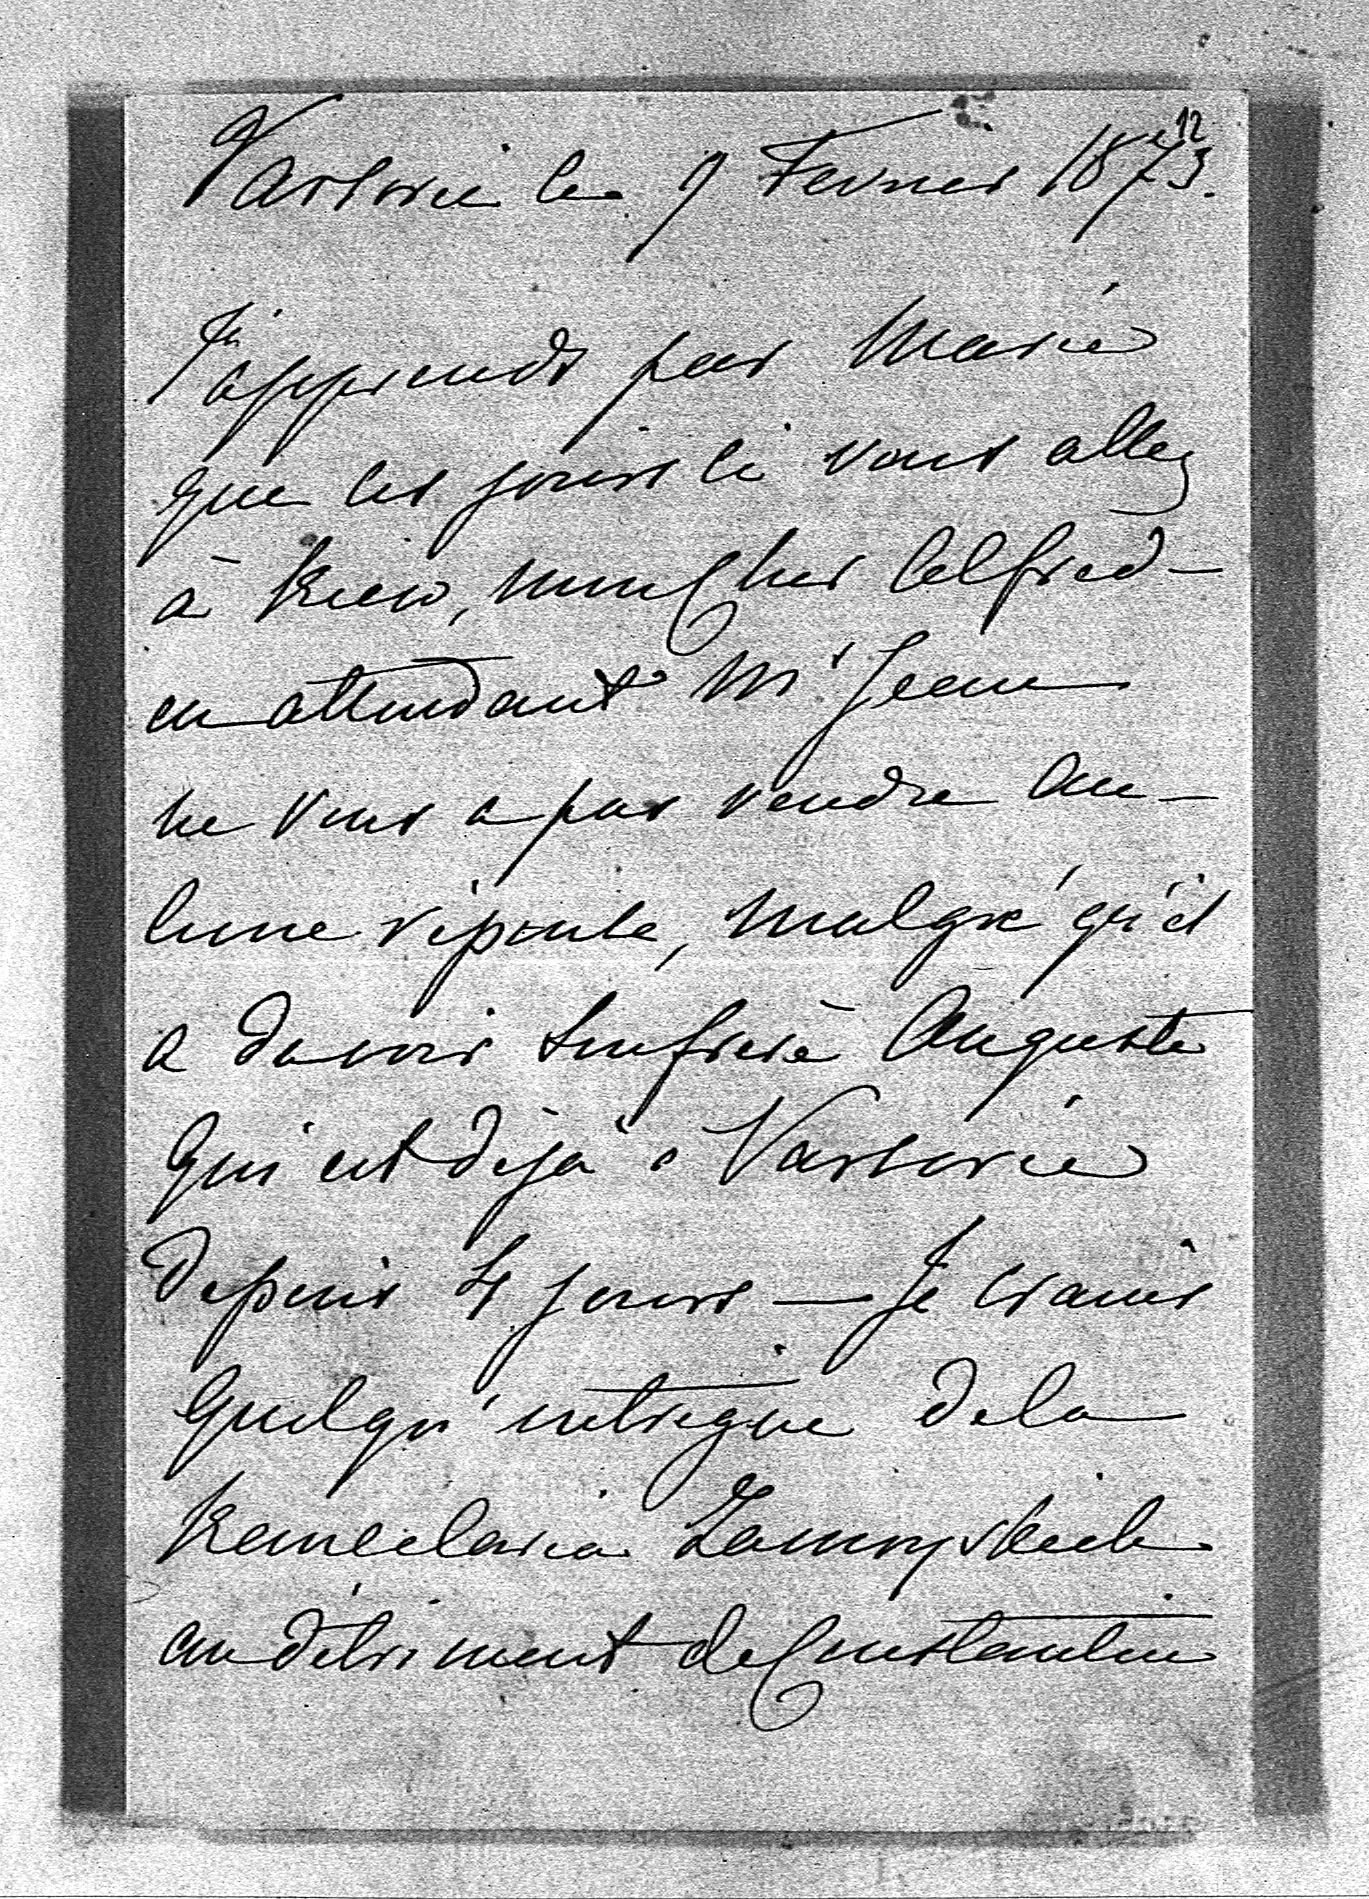 12
Varsovie le 9 Fevrier 1873.
J'apprends par Marie
que ces jours ci vous allez
à Kiew, mon cher Alfred –
en attendant Mr Jean
ne vous a pas rendre au–
cune réponse, malgré qu'il
a du voir son frère Auguste
qui est déjà à Varsovie
depuis 4 jours — Je crains
quelqu'intrigue de la
Kancelaria Zamoyskich
au détriment de Constantin